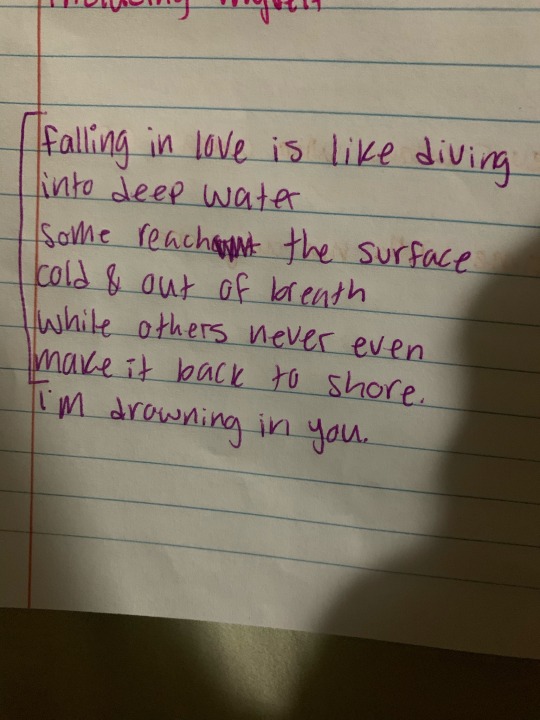 including myself
falling in love is like diving
into deep water
some reach the surface
cold & out of breath
while others never even
make it back to shore.
i'm drowning in you.